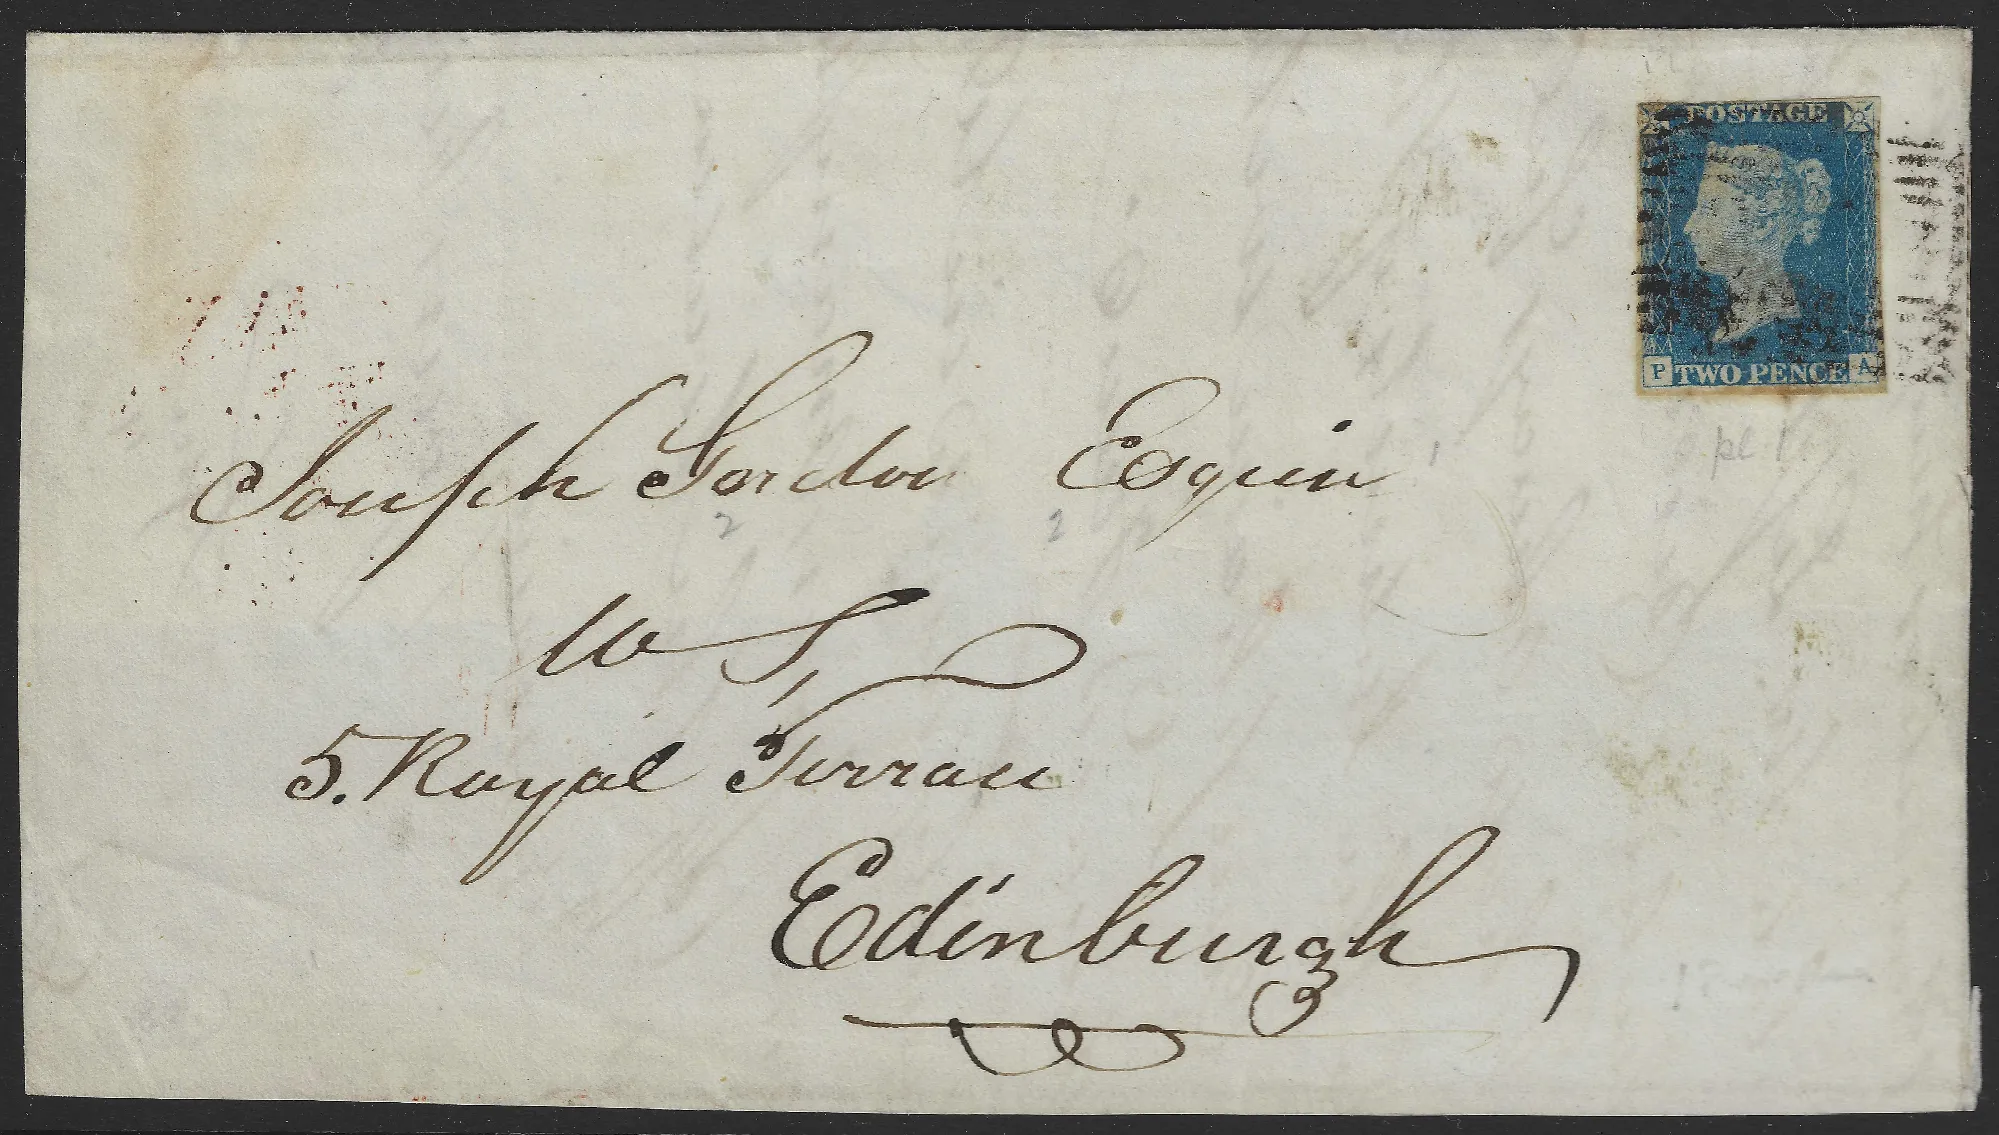 POSTAGE
P TWO PENCE A
pl 1
Joseph Gordon Esquire
2 2
W S
5. Royal Terrace
Edinburgh